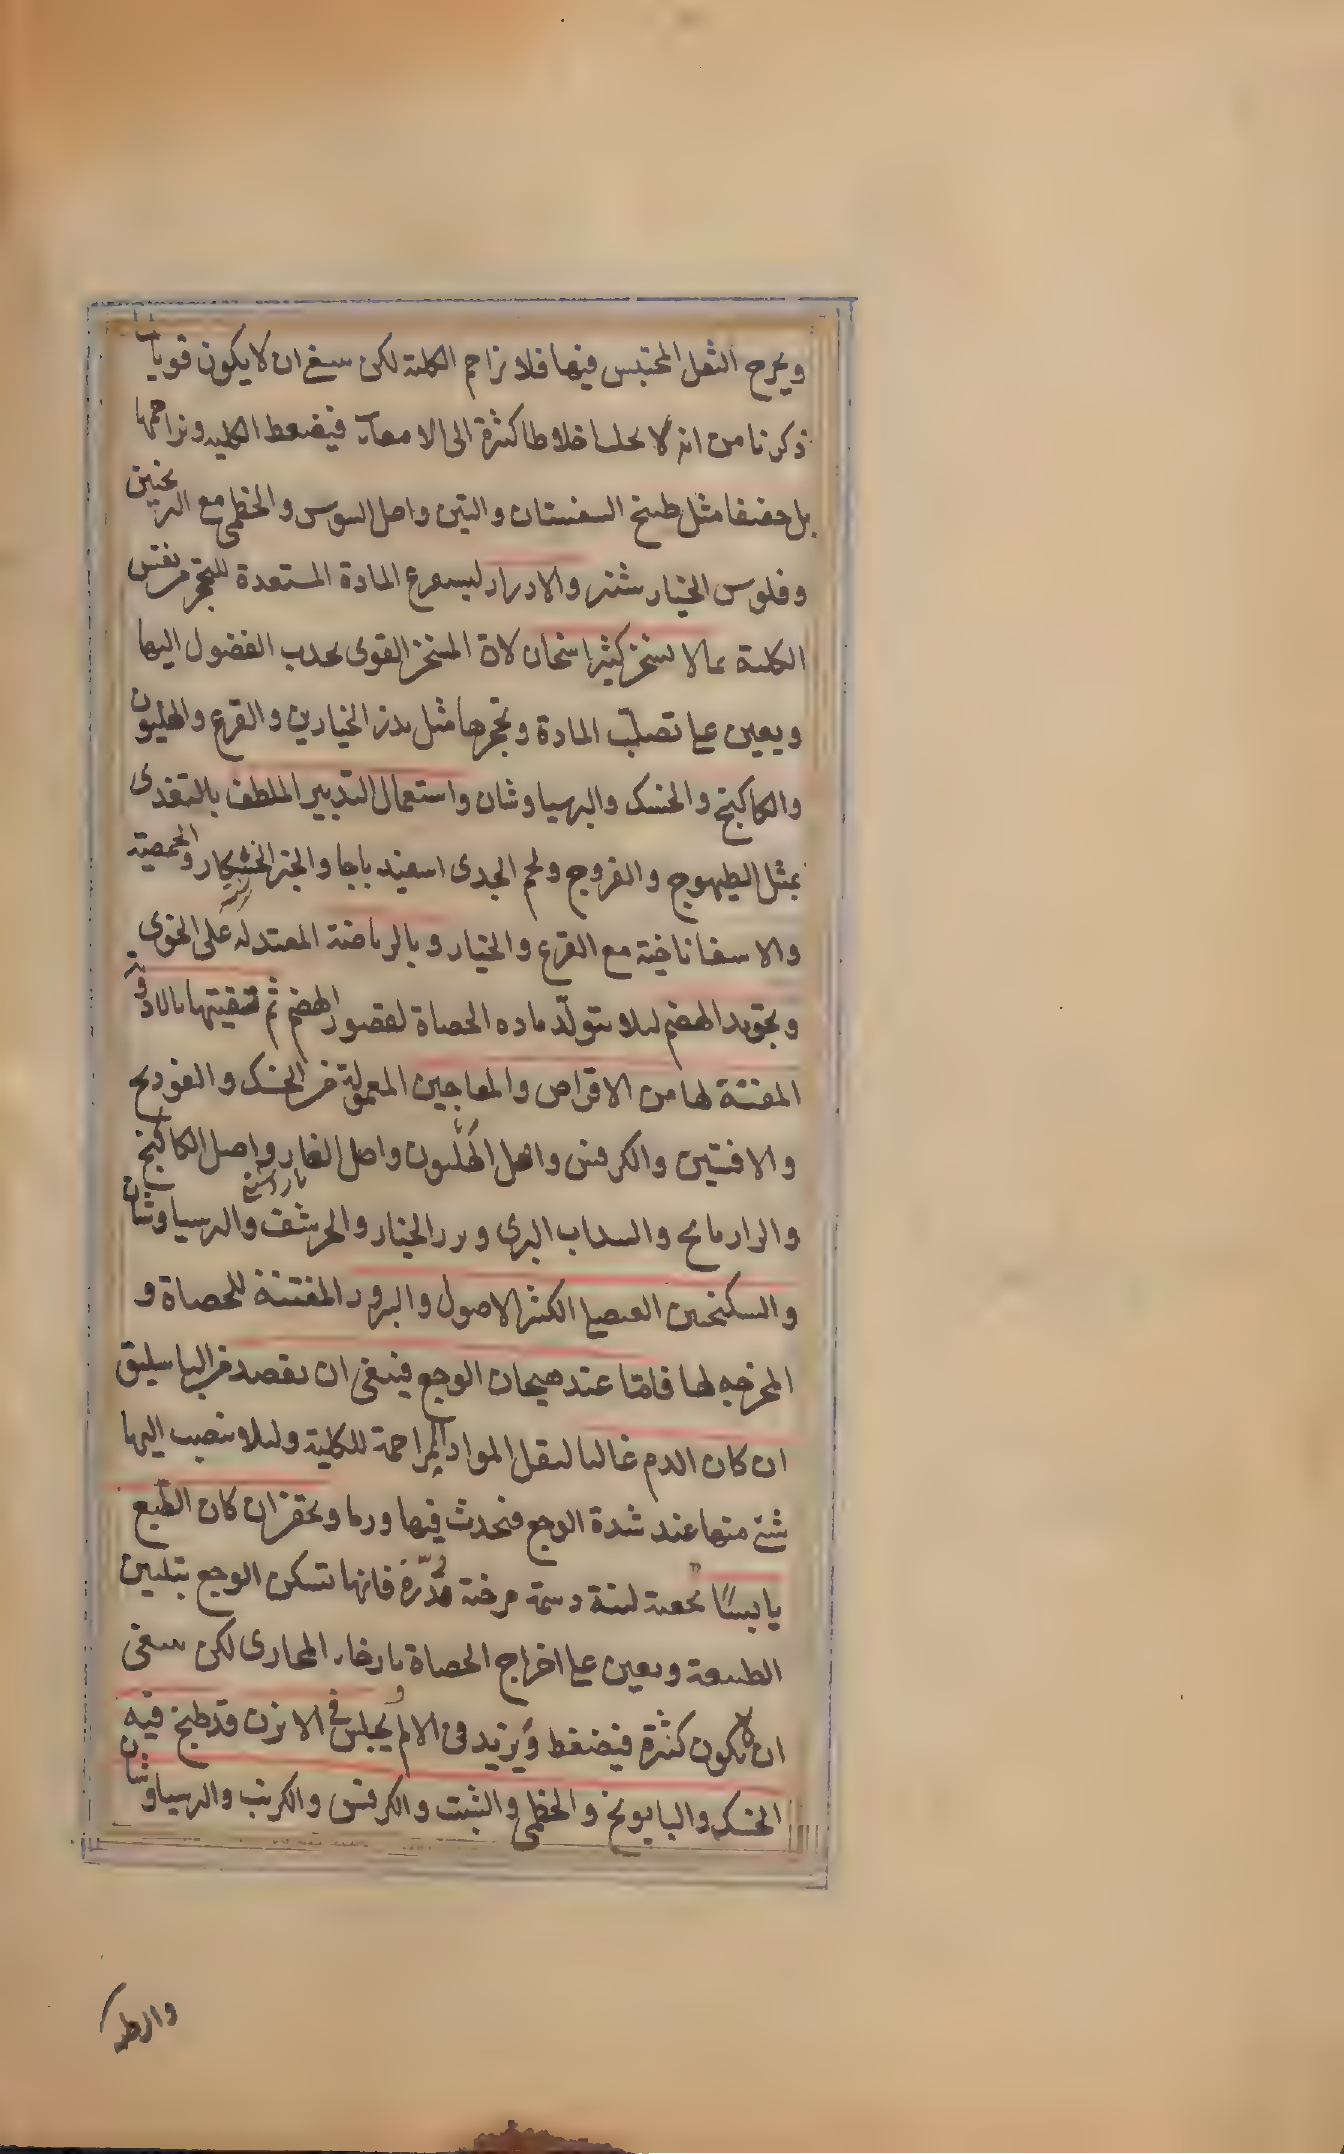 ويخرج الثفل المحتبس فيها فلا تزاحم الكلية لكن ينبغي ان لا يكون قويا لما
ذكرنا من انه لا يجلب اخلاطا كثيرة الى الامعاء فيضغط الكليه وتزاحمها
بل خفيفا مثل طبيخ السفستان والتين واصل السوس والخطمى مع الترنجبين
وفلوس الخيار شنبر والادرار ليسرع المادة المستعدة للتحجر من نفس
الكلية بما لا يسخن كثير اسخان لان المسخن القوى يجذب الفضول اليها
ويعين على تصلّب المادة وتحجرها مثل بذر الخيارين والقرع والهليون
والكاكنج والحسك والبرسياوشان واستعمال التدبير الملطف بالتغذى
بمثل الطيهوج والفروج ولحم الجدى اسفيد باجا والخبز الخشكار والحمصية
والاسفاناخية مع القرع والخيار وبالرياضة المعتدله على الخوى
وتجويد الهضم ليلا يتولّد ماده الحصاة لقصور الهضم ثم تنقيتها بالادوية
المفتتة لها من الاقراص والمعاجين المعمولة من الحسك والفودنج
والافسنتين والكرفس واصل الهليون واصل الغار واصل الكاكنج
والرازيانج والسداب البرى وبزر الخيار والحرشف والبرسياوشان
والسكنجبين العنصلى الكثير الاصول والبزور المفتتة للحصاة و
المخرجه لها فامّا عند هيجان الوجع فينبغى ان يفصد من الباسليق
ان كان الدم غالبا لتقل المواد المزاحمة للكلية وليلا ينصب اليها
شئ منها عند شدة الوجع فيحدث فيها ورما ويحقن ان كان الطبع
يابسًا بحقنة لينة دسمة مرخية مُدّرة فانها تسكن الوجع بتليين
الطبيعة ويعين على اخراج الحصاة بارخاء المجارى لكن ينبغى
ان لا يكون كثيرة فيضغط ويزيد فى الالم ويجلس فى الابزن قد طبخ فيه
الحسك والبابونج والخطمى والشبت والكرفس والكرنب والبرسياوشان